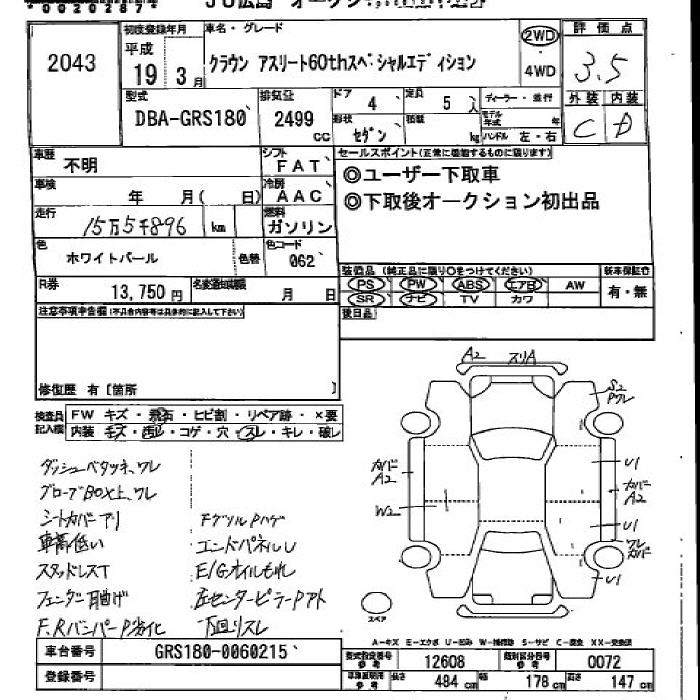 00202874
JU広島 オークション
2043
初度登録年月
平成
19年3月
車名・グレード
クラウン アスリート60thスペシャルエディション
2WD
4WD
評価点
3.5
外装 内装
C D
型式
DBA-GRS180
排気量
2499
cc
ドア 4
定員 5人
形状 セダン
積載 kg
ディーラー・並行
モデル年式 年
ハンドル 左・右
車歴 不明
シフト FAT
セールスポイント(正常に機能するものに限ります)
◎ユーザー下取車
◎下取後オークション初出品
車検 年 月( 日)
冷房 AAC
走行 15万5千896 km
燃料 ガソリン
色 ホワイトパール
色替
色コード 062
装備品(純正品に限り○をつけてください)
新車保証書
PS PW ABS エアB AW
SR ナビ TV カワ
有・無
後日品
R券 13,750円
名変通知期限 月 日
注意事項申告欄(不具合内容等は具体的に記入して下さい)
修復歴 有[箇所 ]
検査員記入欄
FW キズ・飛石・ヒビ割・リペア跡・×要
内装 キズ・汚レ・コゲ・穴・スレ・キレ・破レ
ダッシュベタツキ、ワレ
グローブBOX上、ワレ
シートカバーアリ
車高低い
スタッドレスT
フェンダー耳曲げ
F.RバンパーP劣化
FグリルPハゲ
エンドパネルU
E/Gオイルもれ
左センターピラーPアト
下回りスレ
A2 スリA
S2
Pワレ
カバー
A2
W2
U1
カバー
A2
U1
ワレ
カバー
U1
スペア
A-キズ E-エクボ U-凹み W-補修跡 S-サビ C-腐食 XX-交換済
車台番号 GRS180-0060215
登録番号
型式指定番号 参考 12608
類別区分番号 参考 0072
車庫証明用 参考 長さ 484 cm 幅 178 cm 高さ 147 cm